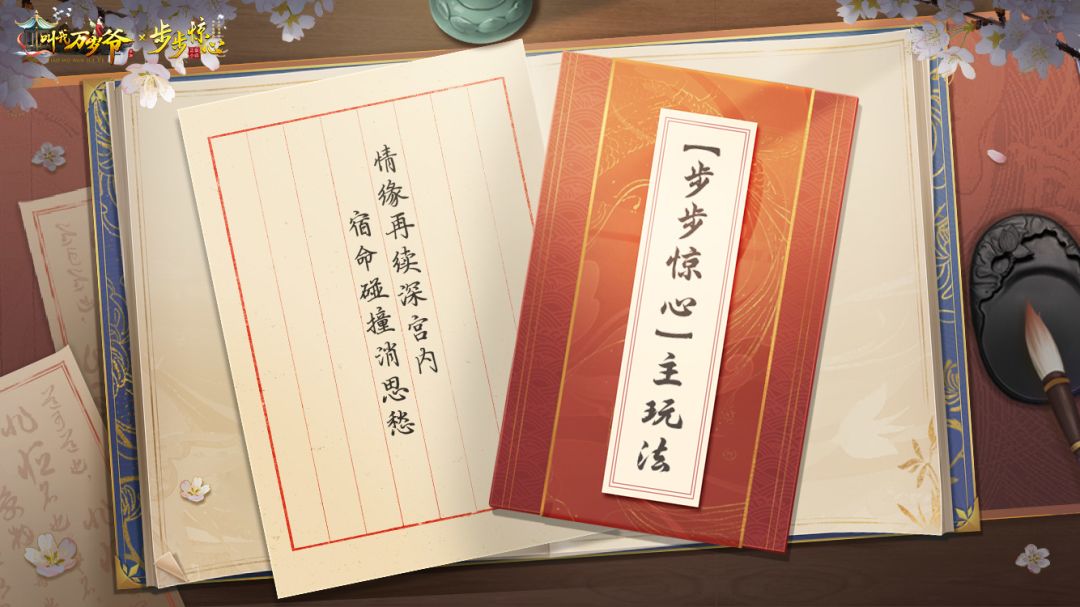 叫我万岁爷 × 步步惊心
情缘再续深宫内
宿命碰撞消思愁
【步步惊心】主玩法